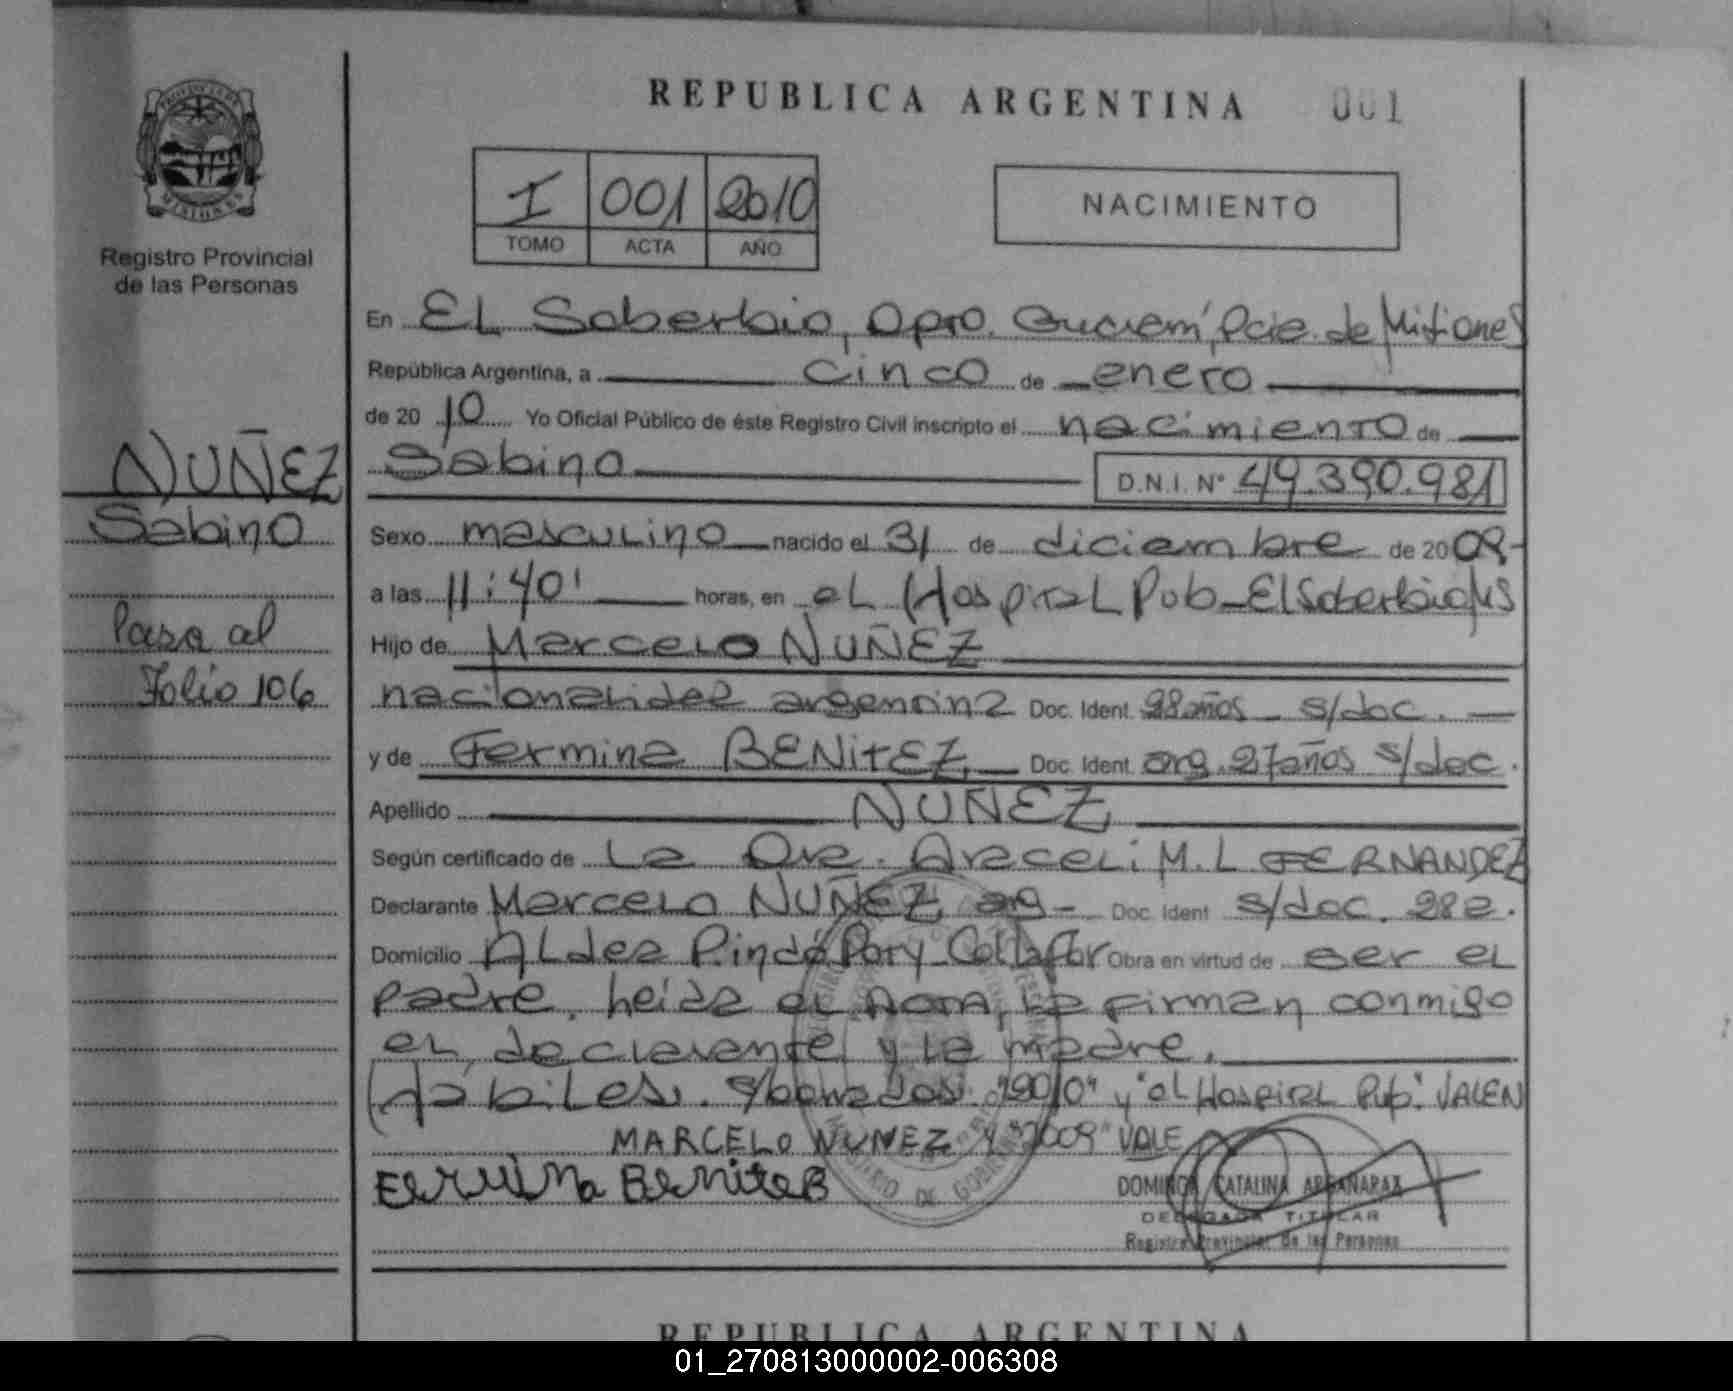 REPUBLICA ARGENTINA 001
PROVINCIA DE MISIONES
Registro Provincial
de las Personas
I 001 2010
TOMO ACTA AÑO
NACIMIENTO
En EL Soberbio, Dpto. Guaraní, Pcia. de Misiones
República Argentina, a cinco de enero
de 2010 Yo Oficial Público de éste Registro Civil inscripto el nacimiento de
Sabino D.N.I. Nº 49.390.981
NUÑEZ
Sabino
Pasa al
Folio 106
Sexo masculino nacido el 31 de diciembre de 2009-
a las 11:40' horas, en el Hospital Pub_El Soberbio Ms
Hijo de Marcelo NUÑEZ
nacionalidad argentina Doc. Ident. 28 años - s/doc.
y de Fermina BENITEZ Doc. Ident. arg. 27 años s/doc.
Apellido NUÑEZ
Según certificado de La Dra. Araceli M. L FERNANDEZ
Declarante Marcelo NUÑEZ arg- Doc. Ident s/doc. 28a.
Domicilio Aldea Pindó Poty Obra en virtud de ser el
padre, leída el Acta, la firman conmigo
el declarante y la madre.
Hábiles. s/borrados: "2010" y "el Hospital Pub." VALEN
MARCELO NUNEZ y "2009" VALE
Fermina Benitez
DOMINGA CATALINA ARGAÑARAZ
DELEGADA TITULAR
Registro Provincial de las Personas
MINISTERIO DE GOBIERNO
REPUBLICA ARGENTINA
01_270813000002-006308